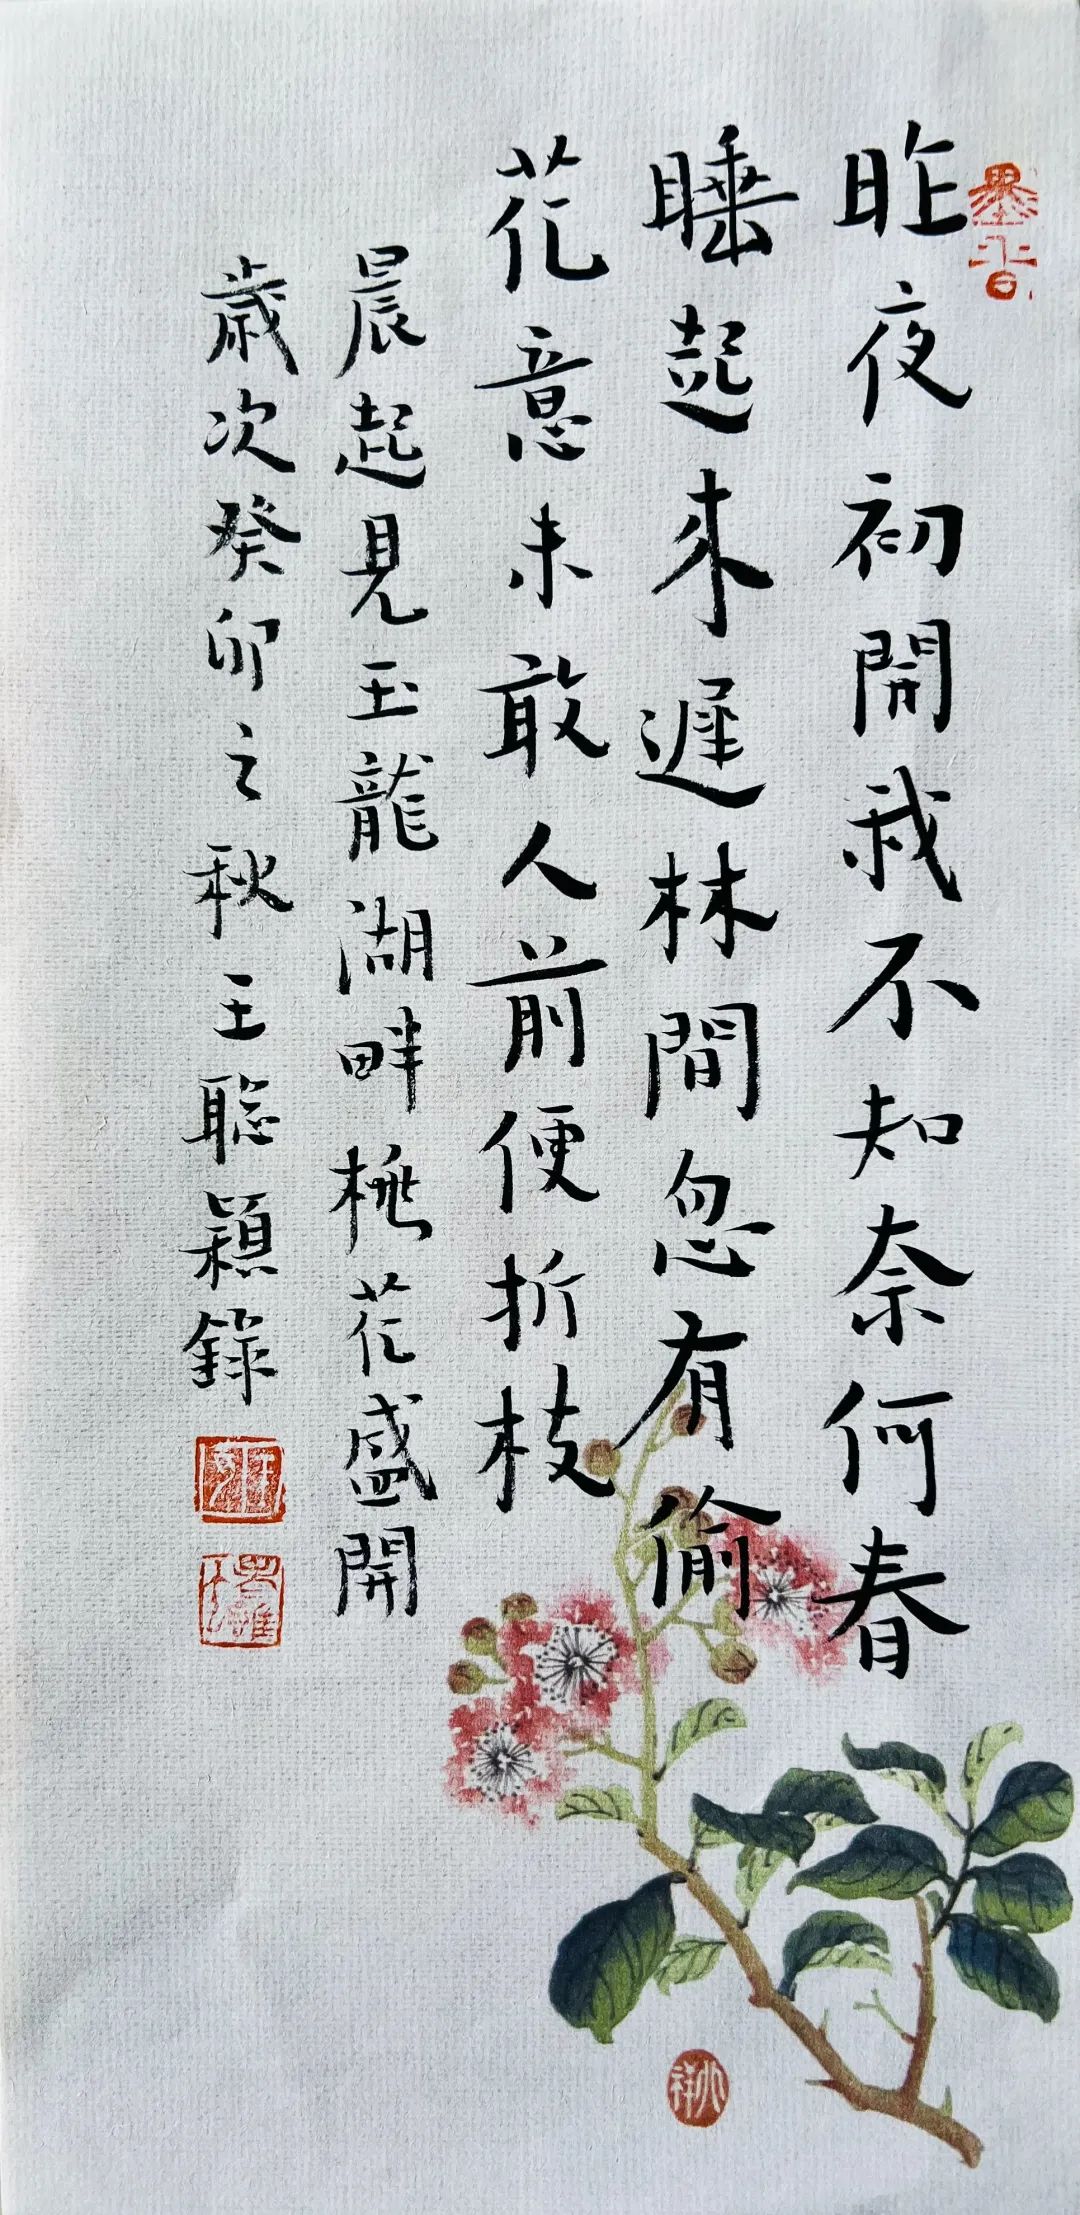 墨香
昨夜初開我不知奈何春
睡起來遲林間忽有偷
花意未敢人前便折枝
晨起見玉龍湖畔桃花盛開
歲次癸卯之秋王聰穎錄